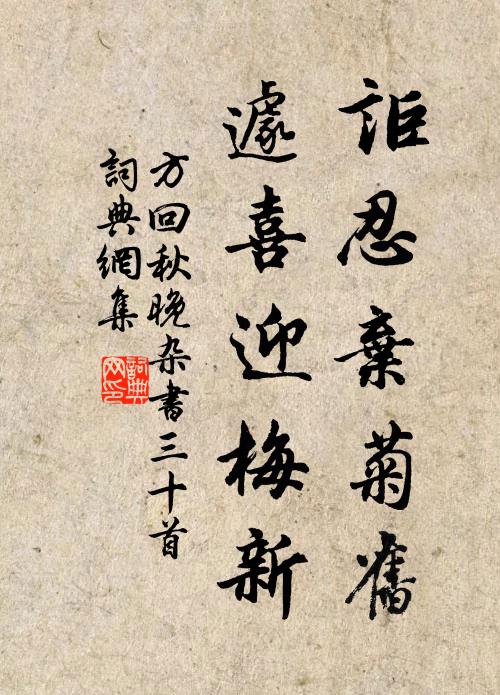 詎忍棄菊舊
遽喜迎梅新
方回秋晚杂書三十首
詞典網集
詞典網印